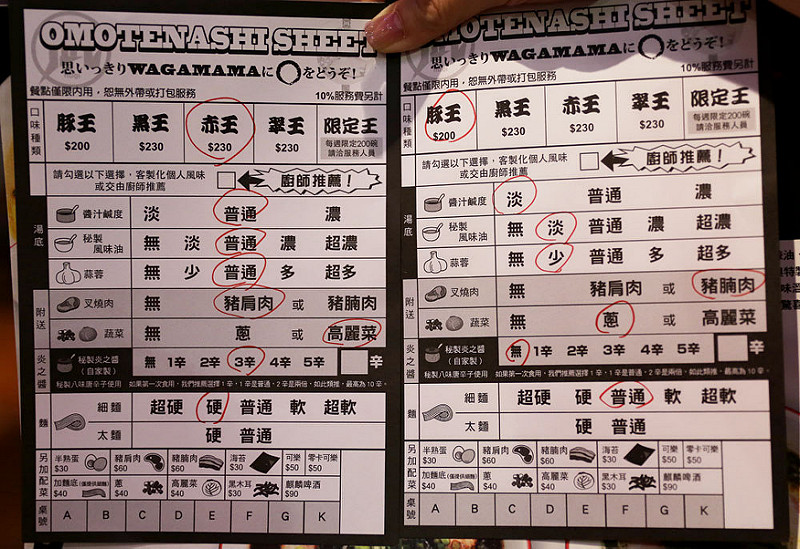 OMOTENASHI SHEET
思いっきりWAGAMAMAに〇をどうぞ!
餐點僅限內用，恕無外帶或打包服務
10%服務費另計
口味種類
豚王 $200
黑王 $230
赤王 $230
翠王 $230
限定王 每週限定200碗 請洽服務人員
請勾選以下選擇，客製化個人風味
或交由廚師推薦
廚師推薦!
湯底
醬汁鹹度 淡 普通 濃
秘製風味油 無 淡 普通 濃 超濃
蒜蓉 無 少 普通 多 超多
附送
叉燒肉 無 豬肩肉 或 豬腩肉
蔬菜 無 蔥 或 高麗菜
炎之醬
秘製炎之醬(自家製) 無 1辛 2辛 3辛 4辛 5辛 辛
秘製八味唐辛子使用 如果第一次食用，我們推薦選擇1辛，1辛是普通，2辛是兩倍，如此類推，最高為10辛。
麵
細麵 超硬 硬 普通 軟 超軟
太麵 硬 普通
另加配菜
半熟蛋 $30
豬肩肉 $60
豬腩肉 $60
海苔 $30
可樂 $50
零卡可樂 $50
加麵底(僅提供細麵) $40
蔥 $40
高麗菜 $40
黑木耳 $30
麒麟啤酒 $90
桌號 A B C D E F G K
OMOTENASHI SHEET
思いっきりWAGAMAMAに〇をどうぞ!
餐點僅限內用，恕無外帶或打包服務
10%服務費另計
口味種類
豚王 $200
黑王 $230
赤王 $230
翠王 $230
限定王 每週限定200碗 請洽服務人員
請勾選以下選擇，客製化個人風味
或交由廚師推薦
廚師推薦!
湯底
醬汁鹹度 淡 普通 濃
秘製風味油 無 淡 普通 濃 超濃
蒜蓉 無 少 普通 多 超多
附送
叉燒肉 無 豬肩肉 或 豬腩肉
蔬菜 無 蔥 或 高麗菜
炎之醬
秘製炎之醬(自家製) 無 1辛 2辛 3辛 4辛 5辛 辛
秘製八味唐辛子使用 如果第一次食用，我們推薦選擇1辛，1辛是普通，2辛是兩倍，如此類推，最高為10辛。
麵
細麵 超硬 硬 普通 軟 超軟
太麵 硬 普通
另加配菜
半熟蛋 $30
豬肩肉 $60
豬腩肉 $60
海苔 $30
可樂 $50
零卡可樂 $50
加麵底(僅提供細麵) $40
蔥 $40
高麗菜 $40
黑木耳 $30
麒麟啤酒 $90
桌號 A B C D E F G K